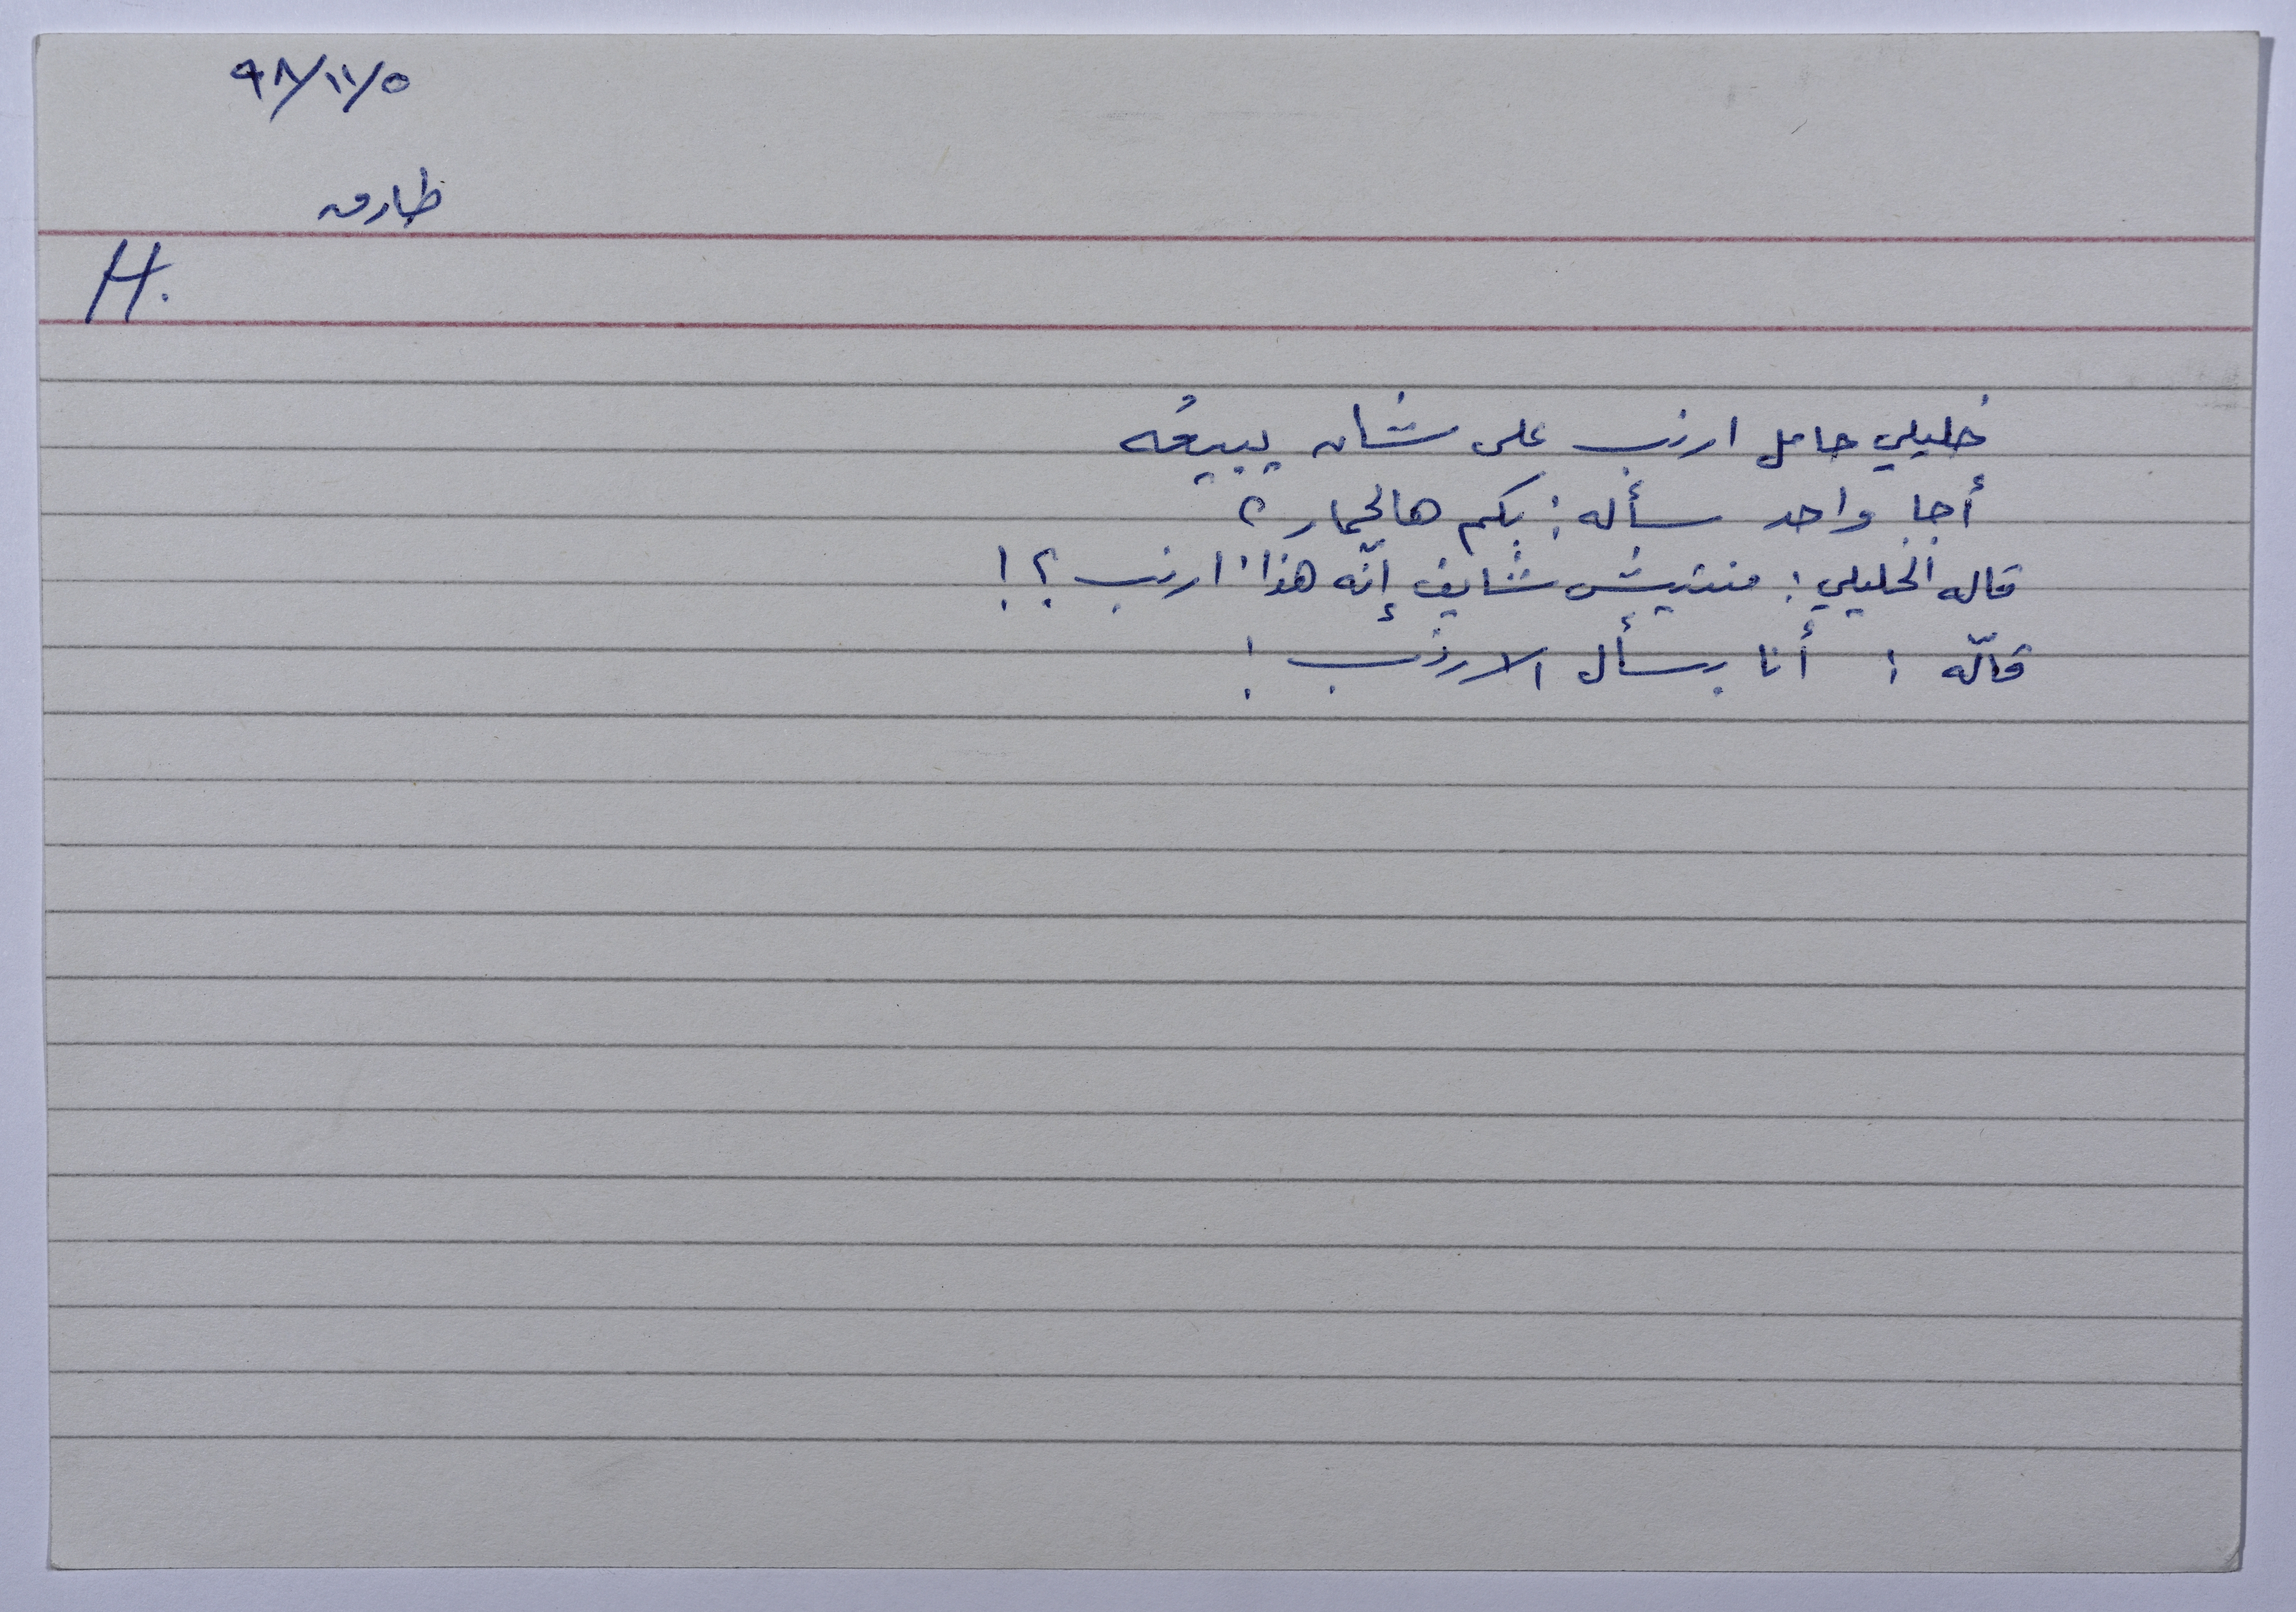 ٩٨/١١/٥
طارق
H.
خليلي حامل ارنب على شان يبيعُه
أجا واحد سأله: بكم هالحمار؟
قاله الخليلي: منتيش شايف إنّه هذا ارنب؟!
قالّه: أنا بسأل الارنب!